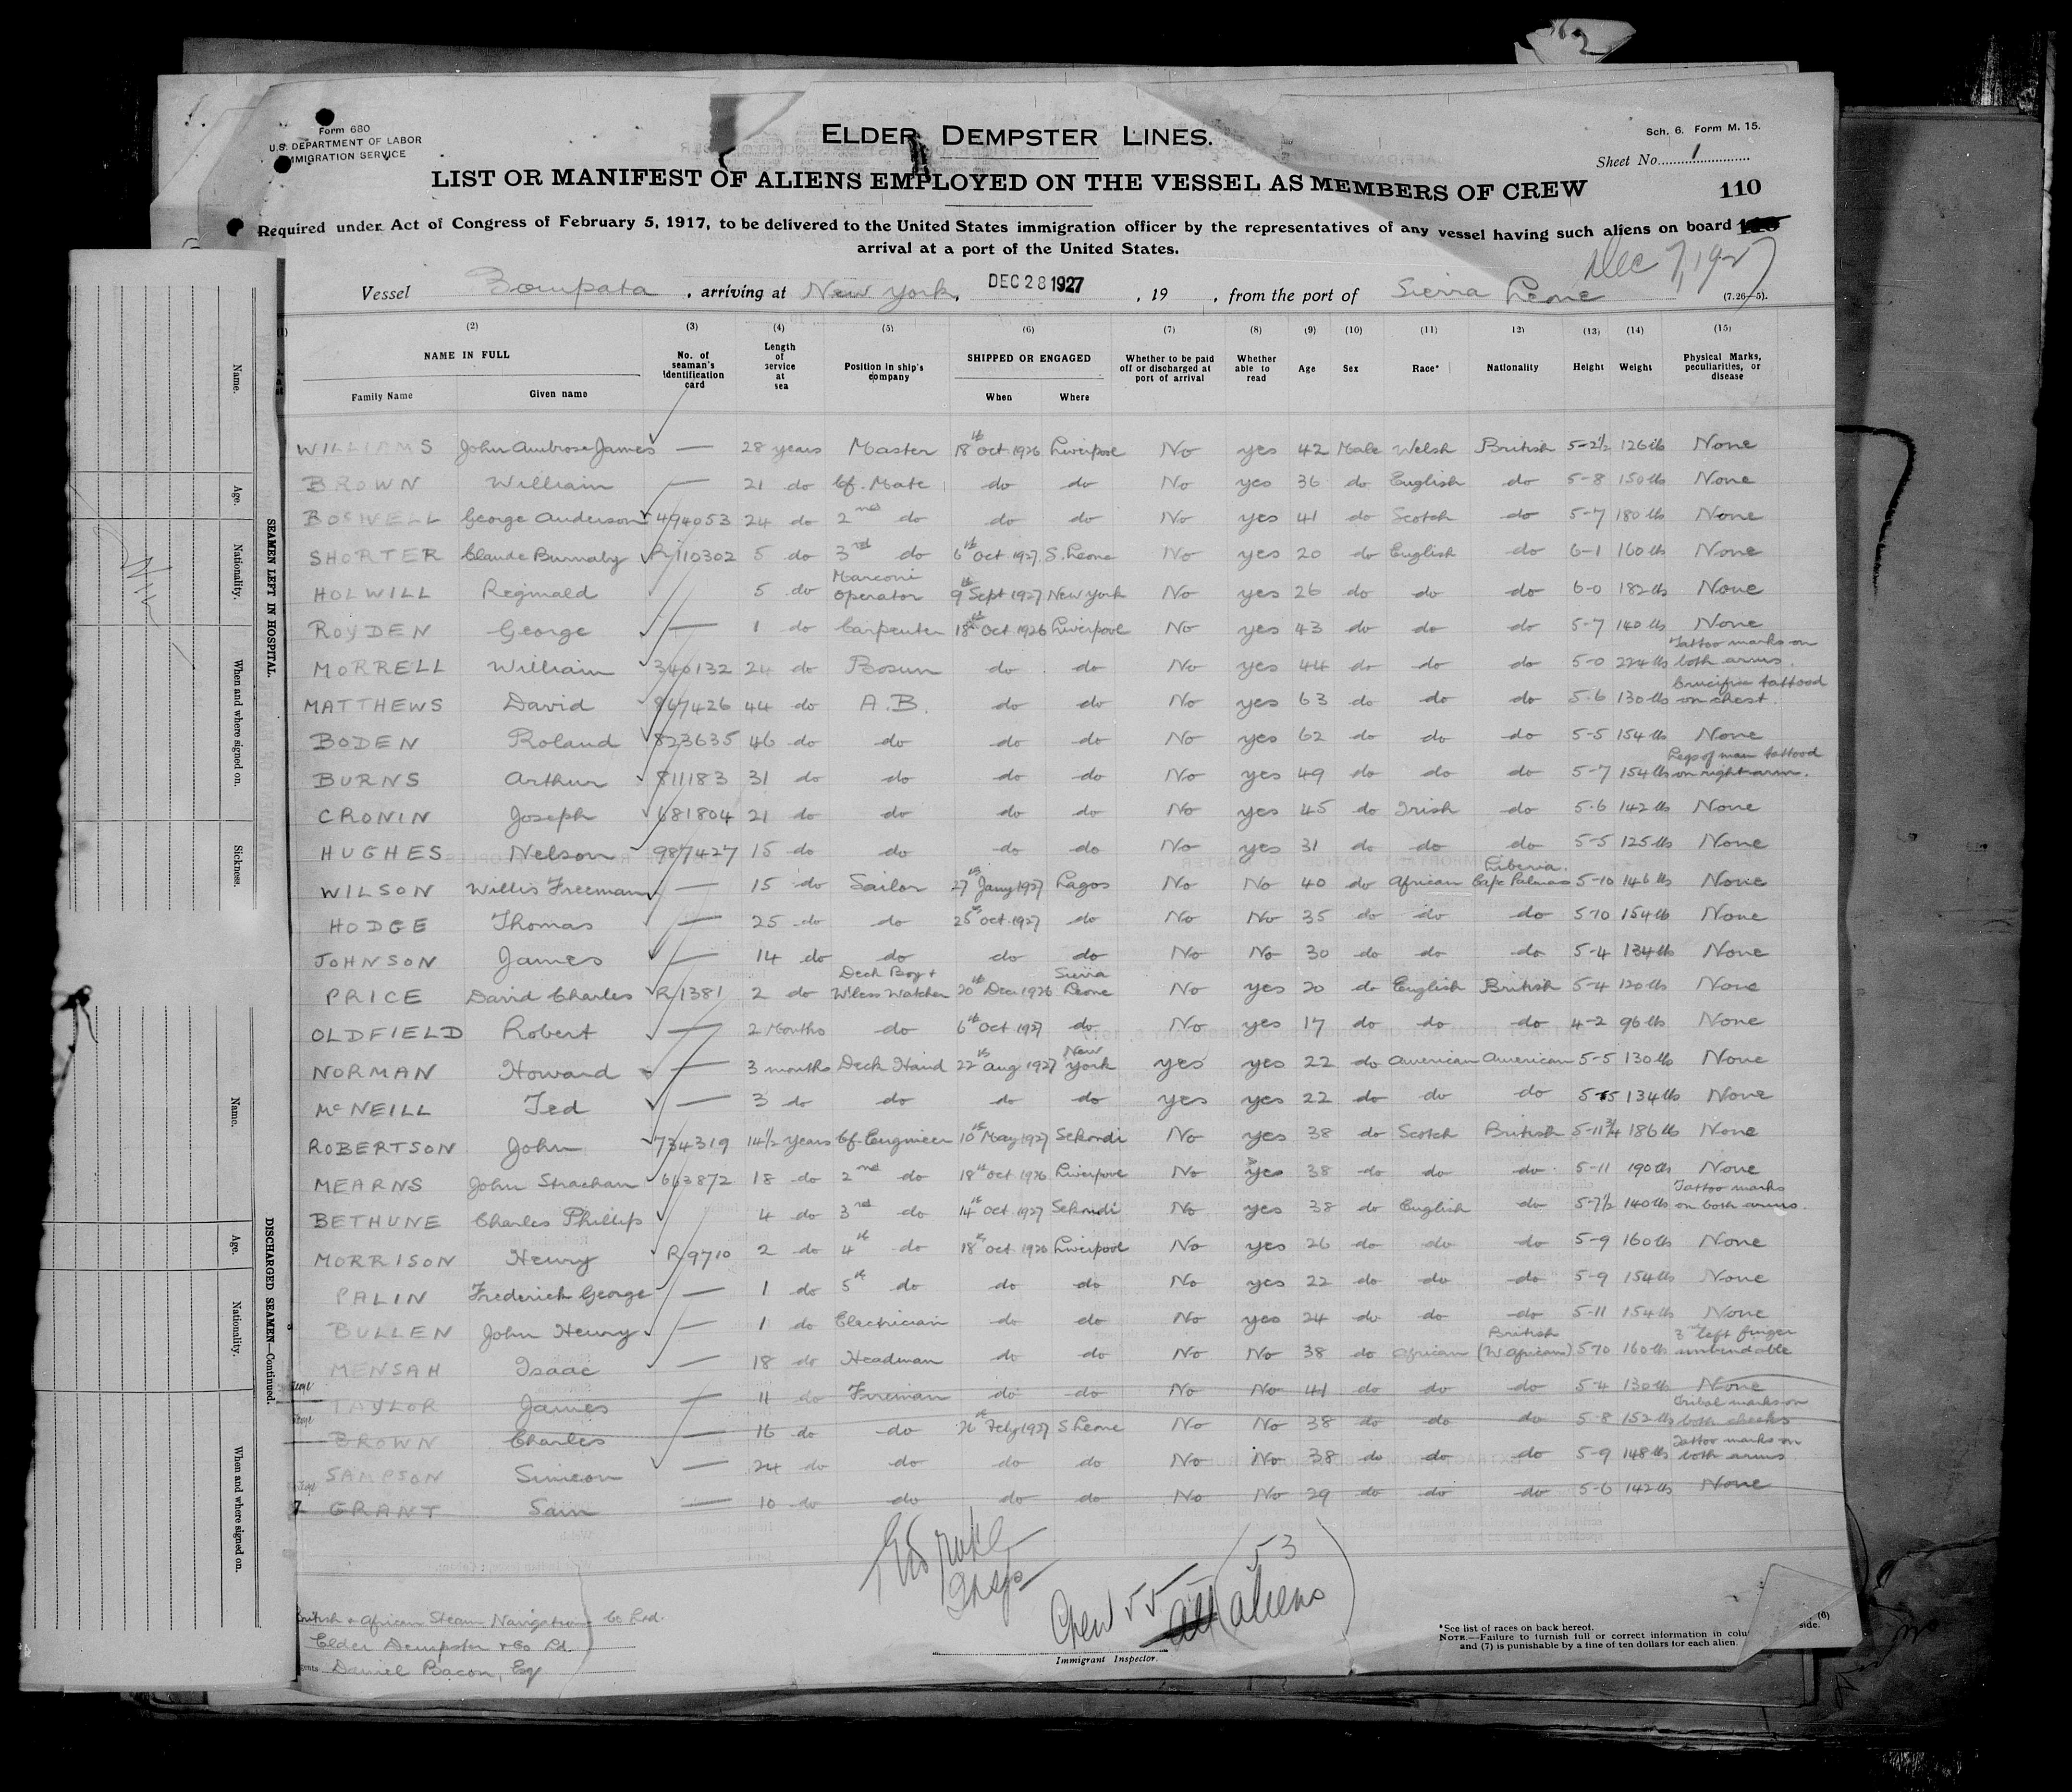 Form 680
U.S. DEPARTMENT OF LABOR
IMMIGRATION SERVICE
ELDER DEMPSTER LINES.
Sch. 6. Form M. 15.
Sheet No. 1
LIST OR MANIFEST OF ALIENS EMPLOYED ON THE VESSEL AS MEMBERS OF CREW
110
Required under Act of Congress of February 5, 1917, to be delivered to the United States immigration officer by the representatives of any vessel having such aliens on board
arrival at a port of the United States.
Dec 7, 1927
Vessel Bompata, arriving at New York, DEC 28 1927, 19 , from the port of Sierra Leone (7.26—5).
(1) (2) (3) (4) (5) (6) (7) (8) (9) (10) (11) 12) (13) (14) (15)
NAME IN FULL Family Name Given name No. of seaman's identification card Length of service at sea Position in ship's company SHIPPED OR ENGAGED When Where Whether to be paid off or discharged at port of arrival Whether able to read Age Sex Race* Nationality Height Weight Physical Marks, peculiarities, or disease
WILLIAMS John Ambrose James — 28 years Master 18th Oct 1926 Liverpool No yes 42 Male Welsh British 5-2½ 126 lb None
BROWN William — 21 do Cf. Mate do do No yes 36 do English do 5-8 150 lbs None
BOSWELL George Anderson 494053 24 do 2nd do do do No yes 41 do Scotch do 5-7 180 lbs None
SHORTER Claude Burnaby R110302 5 do 3rd do 6th Oct 1927 S. Leone No yes 20 do English do 6-1 160 lbs None
HOLWILL Reginald 5 do Marconi Operator 9th Sept 1927 New York No yes 26 do do do 6-0 182 lbs None
ROYDEN George — 1 do Carpenter 18th Oct 1926 Liverpool No yes 43 do do do 5-7 140 lbs None
MORRELL William 340132 24 do Bosun do do No yes 44 do do do 5-0 224 lbs Tattoo marks on both arms.
MATTHEWS David 867426 44 do A.B. do do No yes 63 do do do 5.6 130 lbs Crucifix tattood on chest.
BODEN Roland 823635 46 do do do do No yes 62 do do do 5-5 154 lbs None
BURNS Arthur 811183 31 do do do do No yes 49 do do do 5-7 154 lbs Legs of man tattood on right arm.
CRONIN Joseph 681804 21 do do do do No yes 45 do Irish do 5.6 142 lbs None
HUGHES Nelson 987427 15 do do do do No yes 31 do do do 5-5 125 lbs None
WILSON Willis Freeman — 15 do Sailor 27th Jany 1927 Lagos No No 40 do African Liberia. Cape Palmas 5-10 146 lbs None
HODGE Thomas — 25 do do 25th Oct 1927 do No No 35 do do do 5-10 154 lb None
JOHNSON James — 14 do do do do No No 30 do do do 5-4 134 lbs None
PRICE David Charles R1381 2 do Deck Boy + W'less Watcher 20th Dec 1926 Sierra Leone No yes 20 do English British 5-4 120 lbs None
OLDFIELD Robert — 2 Months do 6th Oct 1927 do No yes 17 do do do 4-2 96 lbs None
NORMAN Howard — 3 months Deck Hand 22nd Aug 1927 New York yes yes 22 do American American 5-5 130 lbs None
McNEILL Ted — 3 do do do do yes yes 22 do do do 5-5 134 lbs None
ROBERTSON John 734319 14½ years Cf. Engineer 10th May 1927 Sekondi No yes 38 do Scotch British 5-11¾ 186 lb None
MEARNS John Strachan 663872 18 do 2nd do 18th Oct 1926 Liverpool No yes 38 do do do 5-11 190 lbs None
BETHUNE Charles Phillip 4 do 3rd do 14th Oct 1927 Sekondi No yes 38 do English do 5-7½ 140 lbs Tattoo marks on both arms.
MORRISON Henry R9710 2 do 4th do 18th Oct 1926 Liverpool No yes 26 do do do 5-9 160 lb None
PALIN Frederick George — 1 do 5th do do do No yes 22 do do do 5-9 154 lbs None
BULLEN John Henry — 1 do Electrician do do No yes 24 do do do 5-11 154 lbs None
MENSAH Isaac — 18 do Headman do do No No 38 do African British (W African) 5-10 160 lb 3rd left finger unbendable
TAYLOR James — 11 do Fireman do do No No 41 do do do 5-4 130 lbs None
BROWN Charles — 16 do do 26th Feby 1927 S. Leone No No 38 do do do 5-8 152 lbs Tribal marks on both cheeks
SAMPSON Simeon — 24 do do do do No No 38 do do do 5-9 148 lbs Tattoo marks on both arms
GRANT Sam — 10 do do do do No No 29 do do do 5-6 142 lbs None
Crew 55
53
aliens
British & African Steam Navigation Co Ltd.
Elder Dempster & Co Ld.
Daniel Bacon, Esq
Immigrant Inspector.
*See list of races on back hereof.
NOTE.—Failure to furnish full or correct information in
and (7) is punishable by a fine of ten dollars for each alien.
side. (6)
SEAMEN LEFT IN HOSPITAL.
Name.
Age.
Nationality.
When and where signed on.
Sickness.
DISCHARGED SEAMEN—Continued.
Name.
Age.
Nationality.
When and where signed on.